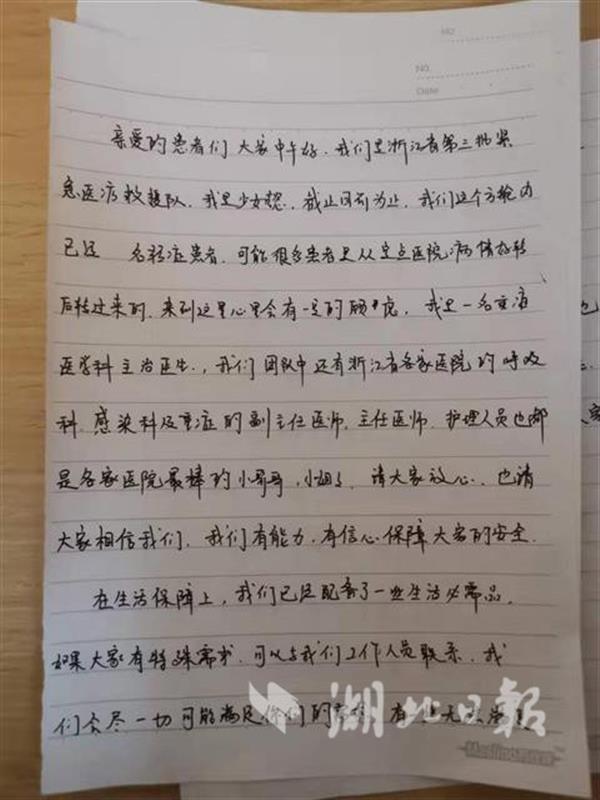 NO.
NO.
Date
亲爱的患者们 大家中午好，我们是浙江省第三批紧
急医疗救援队，我是少女，截止目前为止，我们这个方舱内
已经 名轻症患者，可能很多患者是从定点医院病情好转
后转过来的，来到这里心里会有一定的顾虑，我是一名重症
医学科主治医生，我们团队中还有浙江省各家医院的呼吸
科、感染科及重症的副主任医师，主任医师，护理人员也都
是各家医院最棒的小哥哥，小姐姐，请大家放心，也请
大家相信我们，我们有能力，有信心保障大家的安全。
在生活保障上，我们已经配备了一些生活必需品，
如果大家有特殊需求，可以与我们工作人员联系，我
们会尽一切可能满足你们的需求，有一些无法
湖北日报